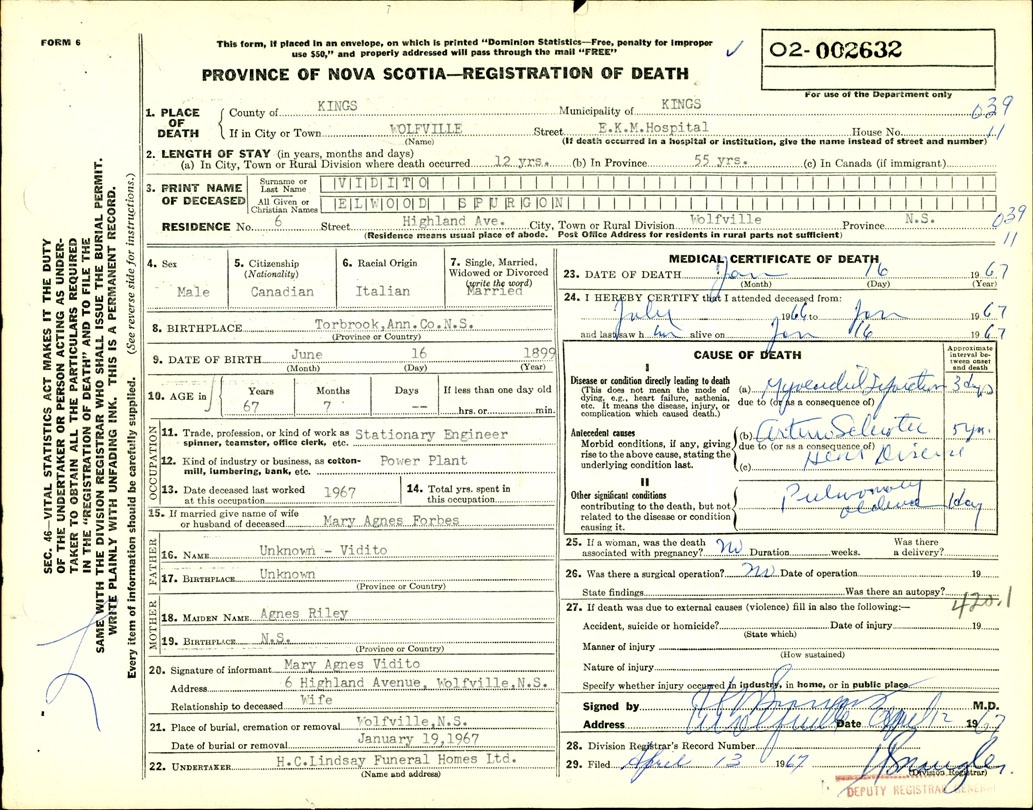 FORM 6
This form, if placed in an envelope, on which is printed "Dominion Statistics—Free, penalty for improper
use $50," and properly addressed will pass through the mail "FREE"
PROVINCE OF NOVA SCOTIA—REGISTRATION OF DEATH
02-002632
For use of the Department only
SEC. 46—VITAL STATISTICS ACT MAKES IT THE DUTY
OF THE UNDERTAKER OR PERSON ACTING AS UNDER-
TAKER TO OBTAIN ALL THE PARTICULARS REQUIRED
IN THE "REGISTRATION OF DEATH" AND TO FILE THE
SAME WITH THE DIVISION REGISTRAR WHO SHALL ISSUE THE BURIAL PERMIT.
WRITE PLAINLY WITH UNFADING INK. THIS IS A PERMANENT RECORD.
Every item of information should be carefully supplied. (See reverse side for instructions.)
1. PLACE OF DEATH
County of KINGS Municipality of KINGS 039
If in City or Town WOLFVILLE Street E.K.M.Hospital House No. 11
(Name) (If death occurred in a hospital or institution, give the name instead of street and number)
2. LENGTH OF STAY (in years, months and days)
(a) In City, Town or Rural Division where death occurred 12 yrs. (b) In Province 55 yrs. (c) In Canada (if immigrant)
3. PRINT NAME OF DECEASED
Surname or Last Name VIDITO
All Given or Christian Names ELWOOD SPURGON
RESIDENCE No. 6 Street Highland Ave. City, Town or Rural Division Wolfville Province N.S. 039
(Residence means usual place of abode. Post Office Address for residents in rural parts not sufficient) 11
4. Sex Male
5. Citizenship (Nationality) Canadian
6. Racial Origin Italian
7. Single, Married, Widowed or Divorced (write the word) Married
8. BIRTHPLACE Torbrook,Ann.Co.N.S.
(Province or Country)
9. DATE OF BIRTH June 16 1899
(Month) (Day) (Year)
10. AGE in Years 67 Months 7 Days -- If less than one day old hrs. or min.
OCCUPATION
11. Trade, profession, or kind of work as spinner, teamster, office clerk, etc. Stationary Engineer
12. Kind of industry or business, as cotton-mill, lumbering, bank, etc. Power Plant
13. Date deceased last worked at this occupation 1967
14. Total yrs. spent in this occupation
15. If married give name of wife or husband of deceased Mary Agnes Forbes
FATHER
16. NAME Unknown - Vidito
17. BIRTHPLACE Unknown
(Province or Country)
MOTHER
18. MAIDEN NAME Agnes Riley
19. BIRTHPLACE N.S.
(Province or Country)
20. Signature of informant Mary Agnes Vidito
Address 6 Highland Avenue, Wolfville,N.S.
Relationship to deceased Wife
21. Place of burial, cremation or removal Wolfville,N.S.
Date of burial or removal January 19,1967
22. UNDERTAKER H.C.Lindsay Funeral Homes Ltd.
(Name and address)
MEDICAL CERTIFICATE OF DEATH
23. DATE OF DEATH Jan 16 1967
(Month) (Day) (Year)
24. I HEREBY CERTIFY that I attended deceased from:
July 1966 to Jan 1967
and last saw him alive on Jan 16 1967
CAUSE OF DEATH
Approximate interval between onset and death
I
Disease or condition directly leading to death
(This does not mean the mode of dying, e.g., heart failure, asthenia, etc. It means the disease, injury, or complication which caused death.)
(a) Myocardial Infarction 3 days
due to (or as a consequence of)
Antecedent causes
Morbid conditions, if any, giving rise to the above cause, stating the underlying condition last.
(b) Arterio Sclerotic 5 yrs.
due to (or as a consequence of)
(c) Heart Disease
II
Other significant conditions
contributing to the death, but not related to the disease or condition causing it.
Pulmonary oedema 1 day
25. If a woman, was the death associated with pregnancy? No Duration weeks. Was there a delivery?
26. Was there a surgical operation? No Date of operation 19
State findings Was there an autopsy?
420.1
27. If death was due to external causes (violence) fill in also the following:—
Accident, suicide or homicide? Date of injury 19
(State which)
Manner of injury
(How sustained)
Nature of injury
Specify whether injury occurred in industry, in home, or in public place
Signed by M.D.
Address Wolfville Date April 12 1967
28. Division Registrar's Record Number
29. Filed April 13 1967
(Division Registrar)
DEPUTY REGISTRAR GENERAL